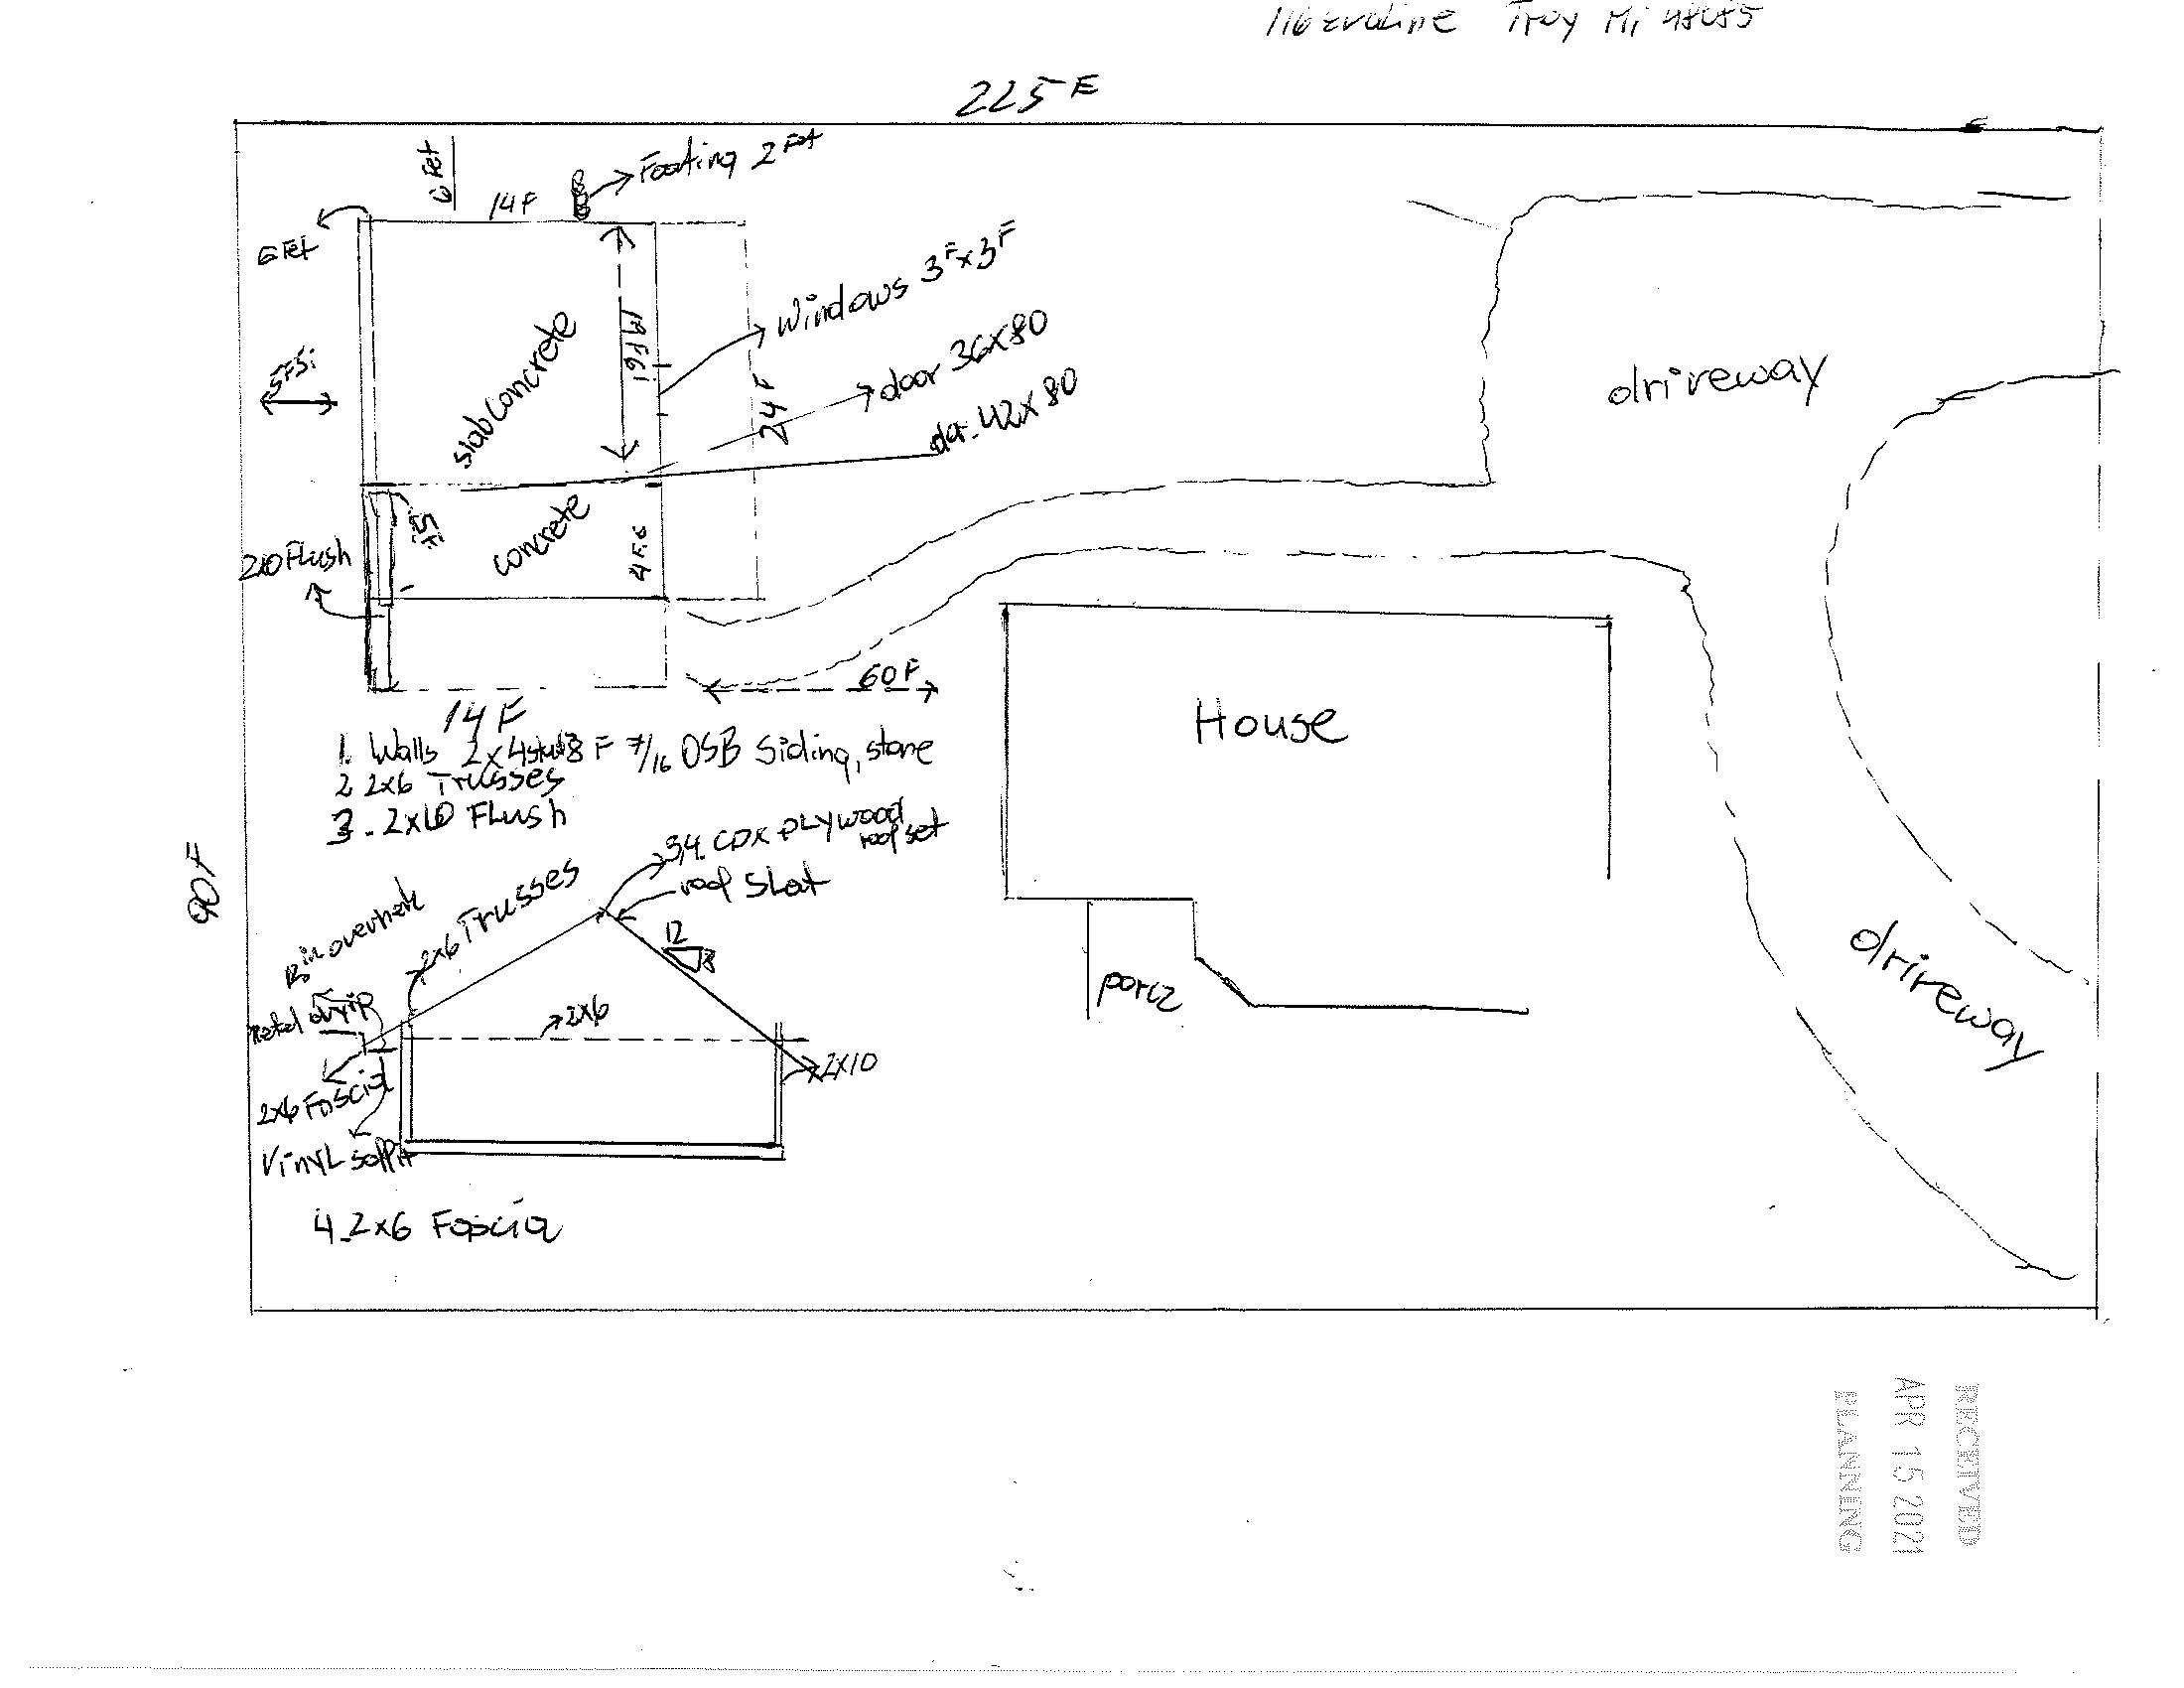 Troy Mi 48085
225 F
6 Fet
Footing 2 Fet
14 F
6 Fet
Windows 3F x 3F
door 36X80
dor. 42X80
5F5i
slab concrete
24 F
drireway
concrete
4 F.6
2x10 Flush
60 F
House
14 F
1. Walls 2x4 stud 8 F 7/16 OSB Siding, stone
2 2x6 Trusses
3. 2x10 FLush
3/4 CDX PLywood
roof set
roof sLat
90 F
2x6 Trusses
12
8
drireway
porcz
metal drip
2x6
2x10
2x6 Foscia
VinyL soffit
4.2x6 Foscia
RECEIVED
APR 15 2021
PLANNING